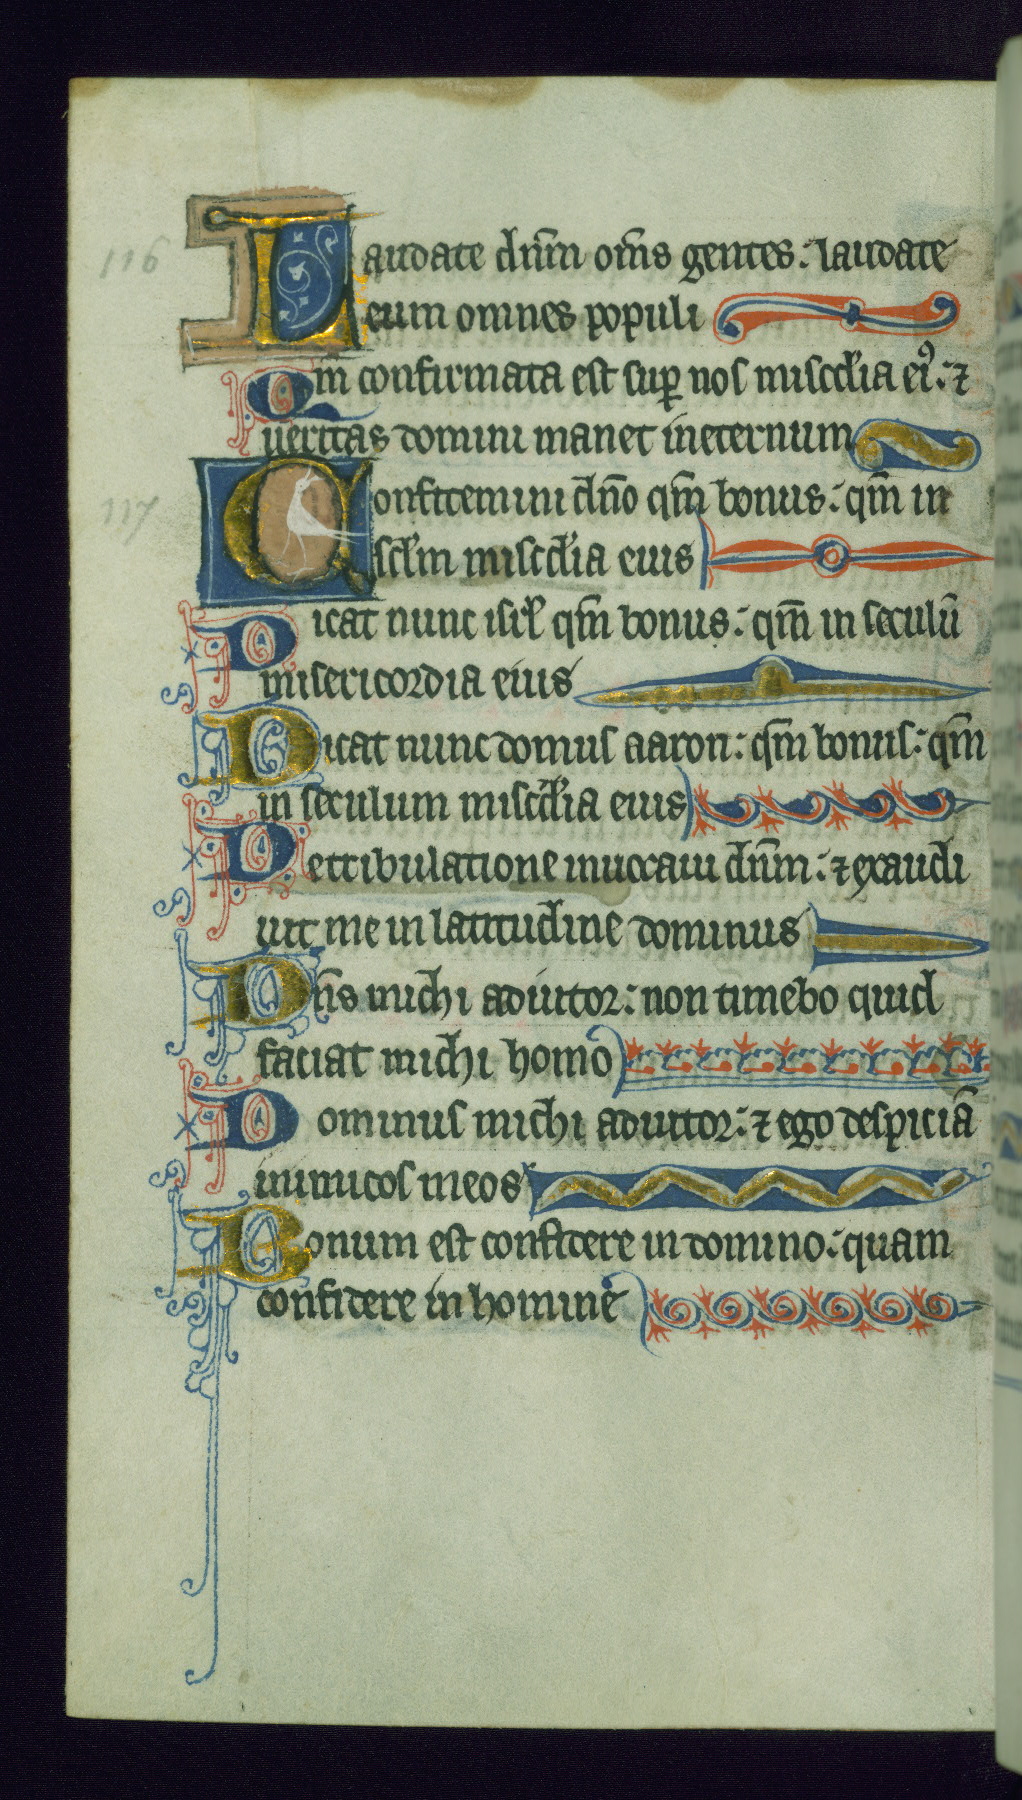 116
Laudate dn̄m om̄s gentes: laudate
eum omnes populi
Qm̄ confirmata est sup̱ nos miscd̄ia ei⁹: ⁊
ueritas domini manet ineternum
117
Confitemini dn̄o qm̄ bonus: qm̄ in
scl̄m miscd̄ia eius
Dicat nunc isrl̄ qm̄ bonus: qm̄ in seculū
misericordia eius
Dicat nunc domus aaron: qm̄ bonus: qm̄
in seculum miscd̄ia eius
De tribulatione inuocaui dn̄m: ⁊ exaudi
uit me in latitudine dominus
Dn̄s michi adiutor: non timebo quid
faciat michi homo
Dominus michi adiutor: ⁊ ego despiciā
inimicos meos
Bonum est confidere in domino: quam
confidere in homine